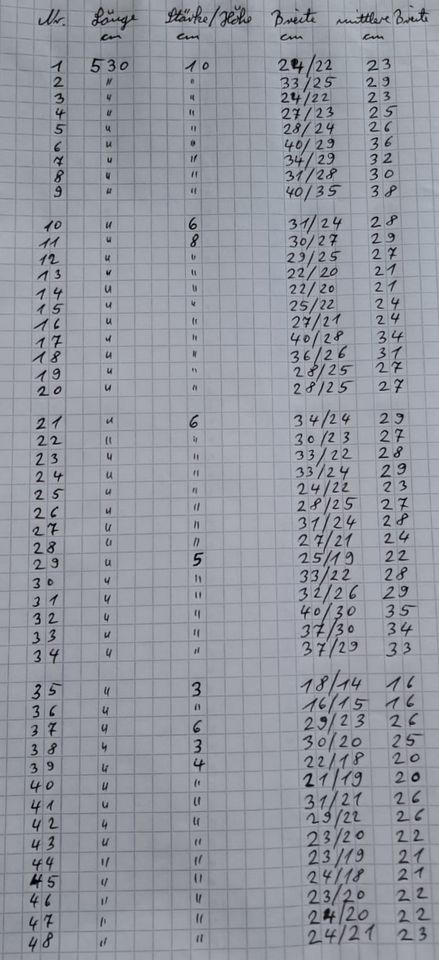 Nr. Länge Stärke/Höhe Breite mittlere Breite
cm cm cm cm
1 530 10 24/22 23
2 " " 33/25 29
3 " " 24/22 23
4 " " 27/23 25
5 " " 28/24 26
6 " " 40/29 36
7 " " 34/29 32
8 " " 31/28 30
9 " " 40/35 38
10 " 6 31/24 28
11 " 8 30/27 29
12 " " 29/25 27
13 " " 22/20 21
14 " " 22/20 21
15 " " 25/22 24
16 " " 27/21 24
17 " " 40/28 34
18 " " 36/26 31
19 " " 28/25 27
20 " " 28/25 27
21 " 6 34/24 29
22 " " 30/23 27
23 " " 33/22 28
24 " " 33/24 29
25 " " 24/22 23
26 " " 28/25 27
27 " " 31/24 28
28 " " 27/21 24
29 " 5 25/19 22
30 " " 33/22 28
31 " " 32/26 29
32 " " 40/30 35
33 " " 37/30 34
34 " " 37/29 33
35 " 3 18/14 16
36 " " 16/15 16
37 " 6 29/23 26
38 " 3 30/20 25
39 " 4 22/18 20
40 " " 21/19 20
41 " " 31/21 26
42 " " 29/22 26
43 " " 23/20 22
44 " " 23/19 21
45 " " 24/18 21
46 " " 23/20 22
47 " " 24/20 22
48 " " 24/21 23